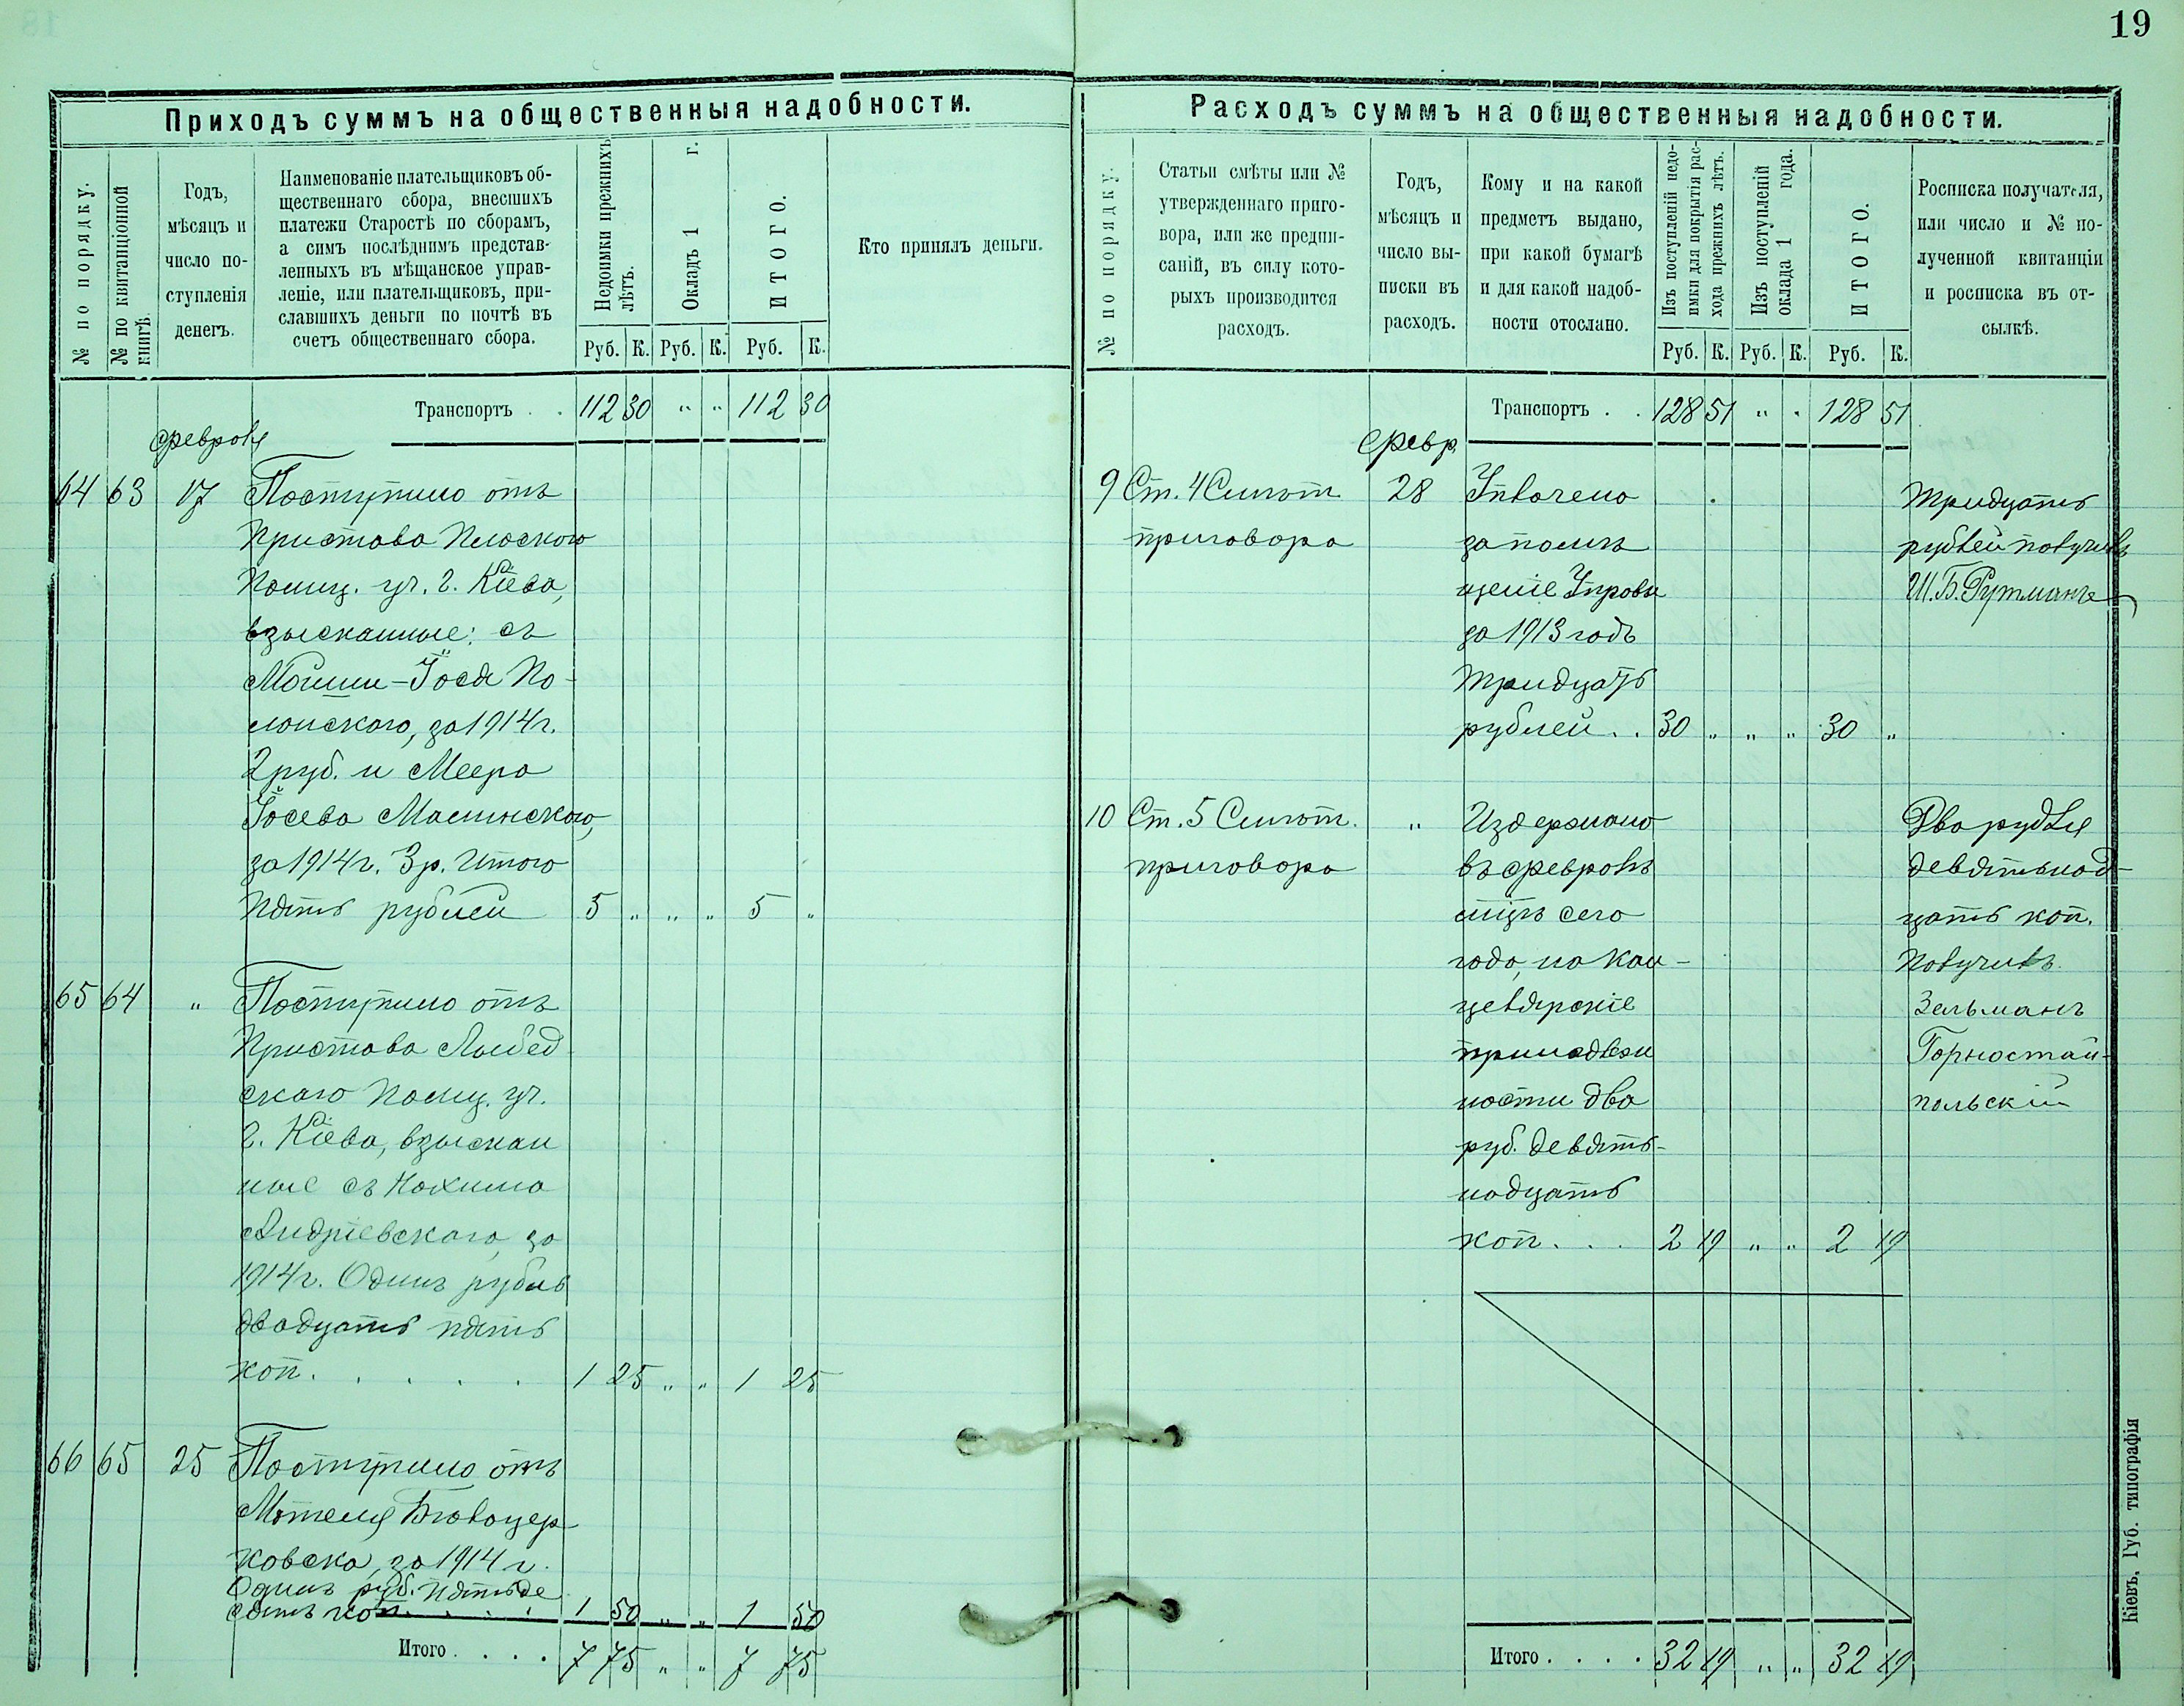 19
Приходъ суммъ на общественныя надобности.
№ по порядку.
№ по квитанціонной книгѣ.
Годъ,
мѣсяцъ и
число по-
ступленія
денегъ.
Наименованіе плательщиковъ об-
щественнаго сбора, внесшихъ
платежи Старостѣ по сборамъ,
а симъ послѣднимъ представ-
ленныхъ въ мѣщанское управ-
леніе, или плательщиковъ, при-
славшихъ деньги по почтѣ въ
счетъ общественнаго сбора.
Недоимки прежнихъ
лѣтъ.
Окладъ 1 г.
ИТОГО.
Кто принялъ деньги.
Руб. К. Руб. К. Руб. К.
Транспортъ . . 112 30 " " 112 30
Февраля
64 63 17 Поступило отъ
Пристава Плоского
Полиц. уч. г. Кіева,
взысканные: съ
Мошки-Іося По-
лонского, за 1914 г.
2 руб. и Меера
Іосева Малинского,
за 1914 г. 3 р. Итого
Пять рублей 5 " " " 5 "
65 64 " Поступило отъ
Пристава Лыбед-
скаго Полиц. уч.
г. Кіева, взыскан
ные съ Нахима
Андріевского, за
1914 г. Одинъ рубль
двадцать пять
коп. . . . . . 1 25 " " 1 25
66 65 25 Поступило отъ
Мотеля Бѣлоцер-
ковска, за 1914 г.
Одинъ руб. пятьде
сятъ коп. . . . 1 50 " " 1 50
Итого . . . . 7 75 " " 7 75
Расходъ суммъ на общественныя надобности.
№ по порядку.
Статьи смѣты или №
утвержденнаго приго-
вора, или же предпи-
саній, въ силу кото-
рыхъ производится
расходъ.
Годъ,
мѣсяцъ и
число вы-
писки въ
расходъ.
Кому и на какой
предметъ выдано,
при какой бумагѣ
и для какой надоб-
ности отослано.
Изъ поступленій недо-
имки для покрытія рас-
хода прежнихъ лѣтъ.
Изъ поступленій
оклада 1 года.
ИТОГО.
Росписка получателя,
или число и № по-
лученной квитанціи
и росписка въ от-
сылкѣ.
Руб. К. Руб. К. Руб. К.
Транспортъ . . 128 51 " " 128 51
Февр.
9 Ст. 4 Смѣтн. 28 Уплачено Тридцать
приговора за помѣ рублей получилъ
щеніе Управы Ш. Б. Рутманъ
за 1913 годъ
Тридцать
рублей . . 30 " " " 30 "
10 Ст. 5 Смѣтн. " Издержано Два рубля
приговора въ Февралѣ девятьнад-
мцѣ сего цать коп.
года, на кан- Получилъ
целярскіе Зельманъ
принадлеж Горностай-
ности два польскій
руб. девять-
надцать
коп. . . . 2 19 " " 2 19
Итого . . . . 32 19 " " 32 19
Кіевъ, Губ. типографія